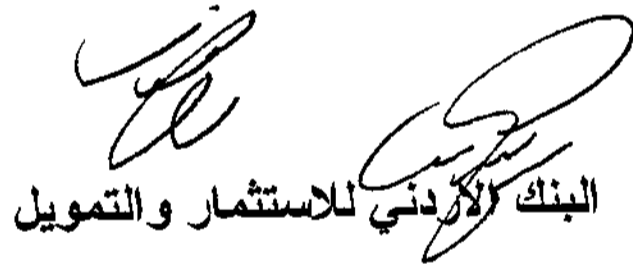 البنك الأردني للاستثمار والتمويل